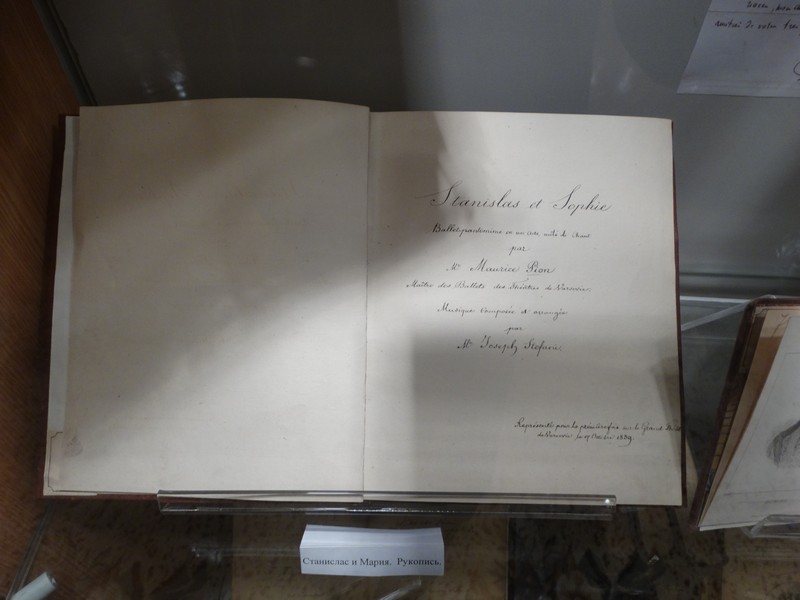 Stanislas et Sophie
Ballet pantomime en un acte mêlé de chant
par
Mr Maurice Pion
Maître des Ballets des Théâtres de Varsovie.
Musique Composée et arrangée
par
Mr Joseph Stefani.
Représenté pour la première fois sur le Grand
de Varsovie le 1839
Станислас и Мария. Рукопись.